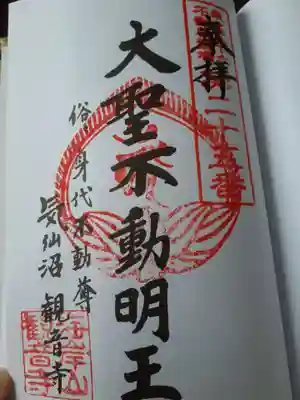 奉拝
二十五番
大聖不動明王
俗、身代不動尊
気仙沼 観音寺